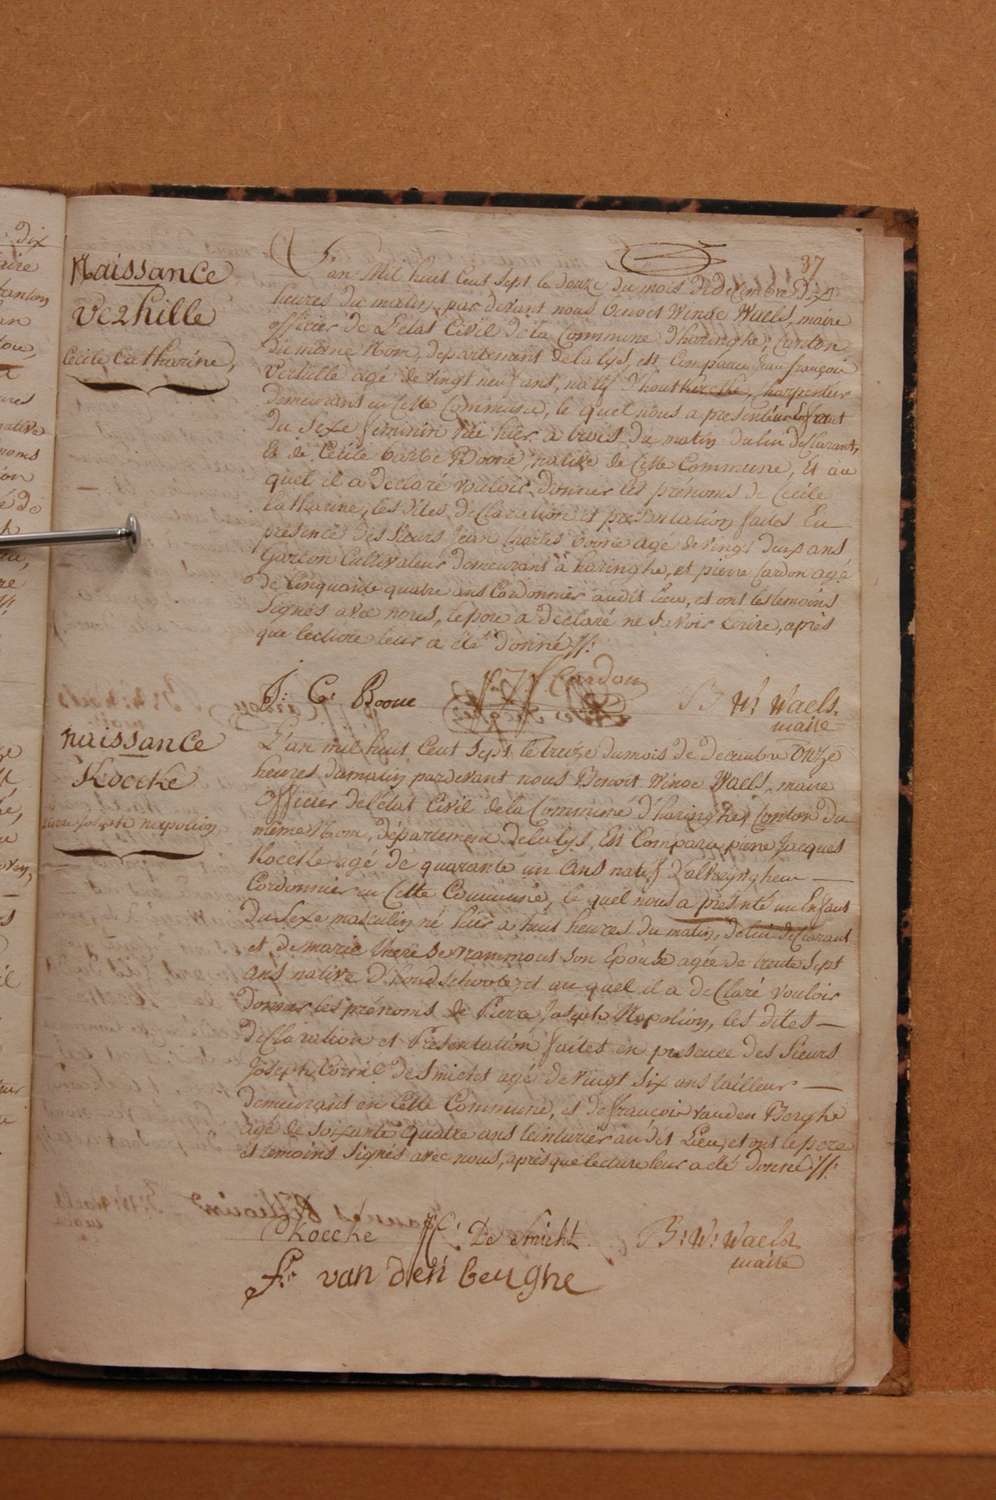 37
Naissance
Verhille
Cecile Catharine,
L'an mil huit Cent Sept le douze du mois de Decembre Dix
heures du matin, par devant nous Benoit Winoc Waels, maire
officier de L'etat Civil de la Commune d'haringhe, Canton
du même Nom, departement de la Lys, est Comparu Jean françois
Verhille agé de vingt neuf ans, natif d'houtkercke, Charpentier
demeurant en Cette Commune, le quel nous a presenté un Enfant
du Sexe feminin née hier a trois du matin de lui declarant,
Et de Cecile barbe Boone native de Cette Commune, Et au
quel il a declaré vouloir donner les prénoms de Cecile
Catharine, les dites declaration et présentation faites En
présence des Sieurs Jean Charles Boone agé de vingt deux ans
Garcon Cultivateur demeurant à haringhe, et pierre Cardon agé
de Cinquante quatre ans Cordonnier audit Lieu, et ont les temoins
Signés avec nous, le pere a déclaré ne Savoir ecrire, après
que lecture leur a été donné //:
J: C: Boone
Cardon
B: W: Waels.
maire
Naissance
Kockke
pierre Joseph Napolion
L'an mil huit Cent Sept le treize du mois de decembre Onze
heures du matin par devant nous Benoit Winoc Waels, maire
Officier de l'etat Civil de la Commune d'haringhe, Canton du
même Nom, département de la Lys, Est Comparu pierre Jacques
Kockke agé de quarante un Ans natif d'
Cordonnier en Cette Commune, le quel nous a présenté un Enfant
du Sexe masculin né hier à huit heures du matin, de lui declarant
et de marie therese Srammous son Epouse agée de trente Sept
ans native d'hondschoote, et au quel il a declaré vouloir
donner les prénoms de Pierre Joseph Napolion, les dites
declaration et Présentation faites en presence des Sieurs
Joseph De Smicht agé de vingt Six ans tailleur
demeurant en Cette Commune, et de françois vanden Berghe
agé de soixante quatre ans teinturier audit Lieu, et ont le pere
et temoins Signés avec nous, après que lecture leur a été donné //:
Kockke
De Smicht
B: W: Waels
maire
fr van den berghe